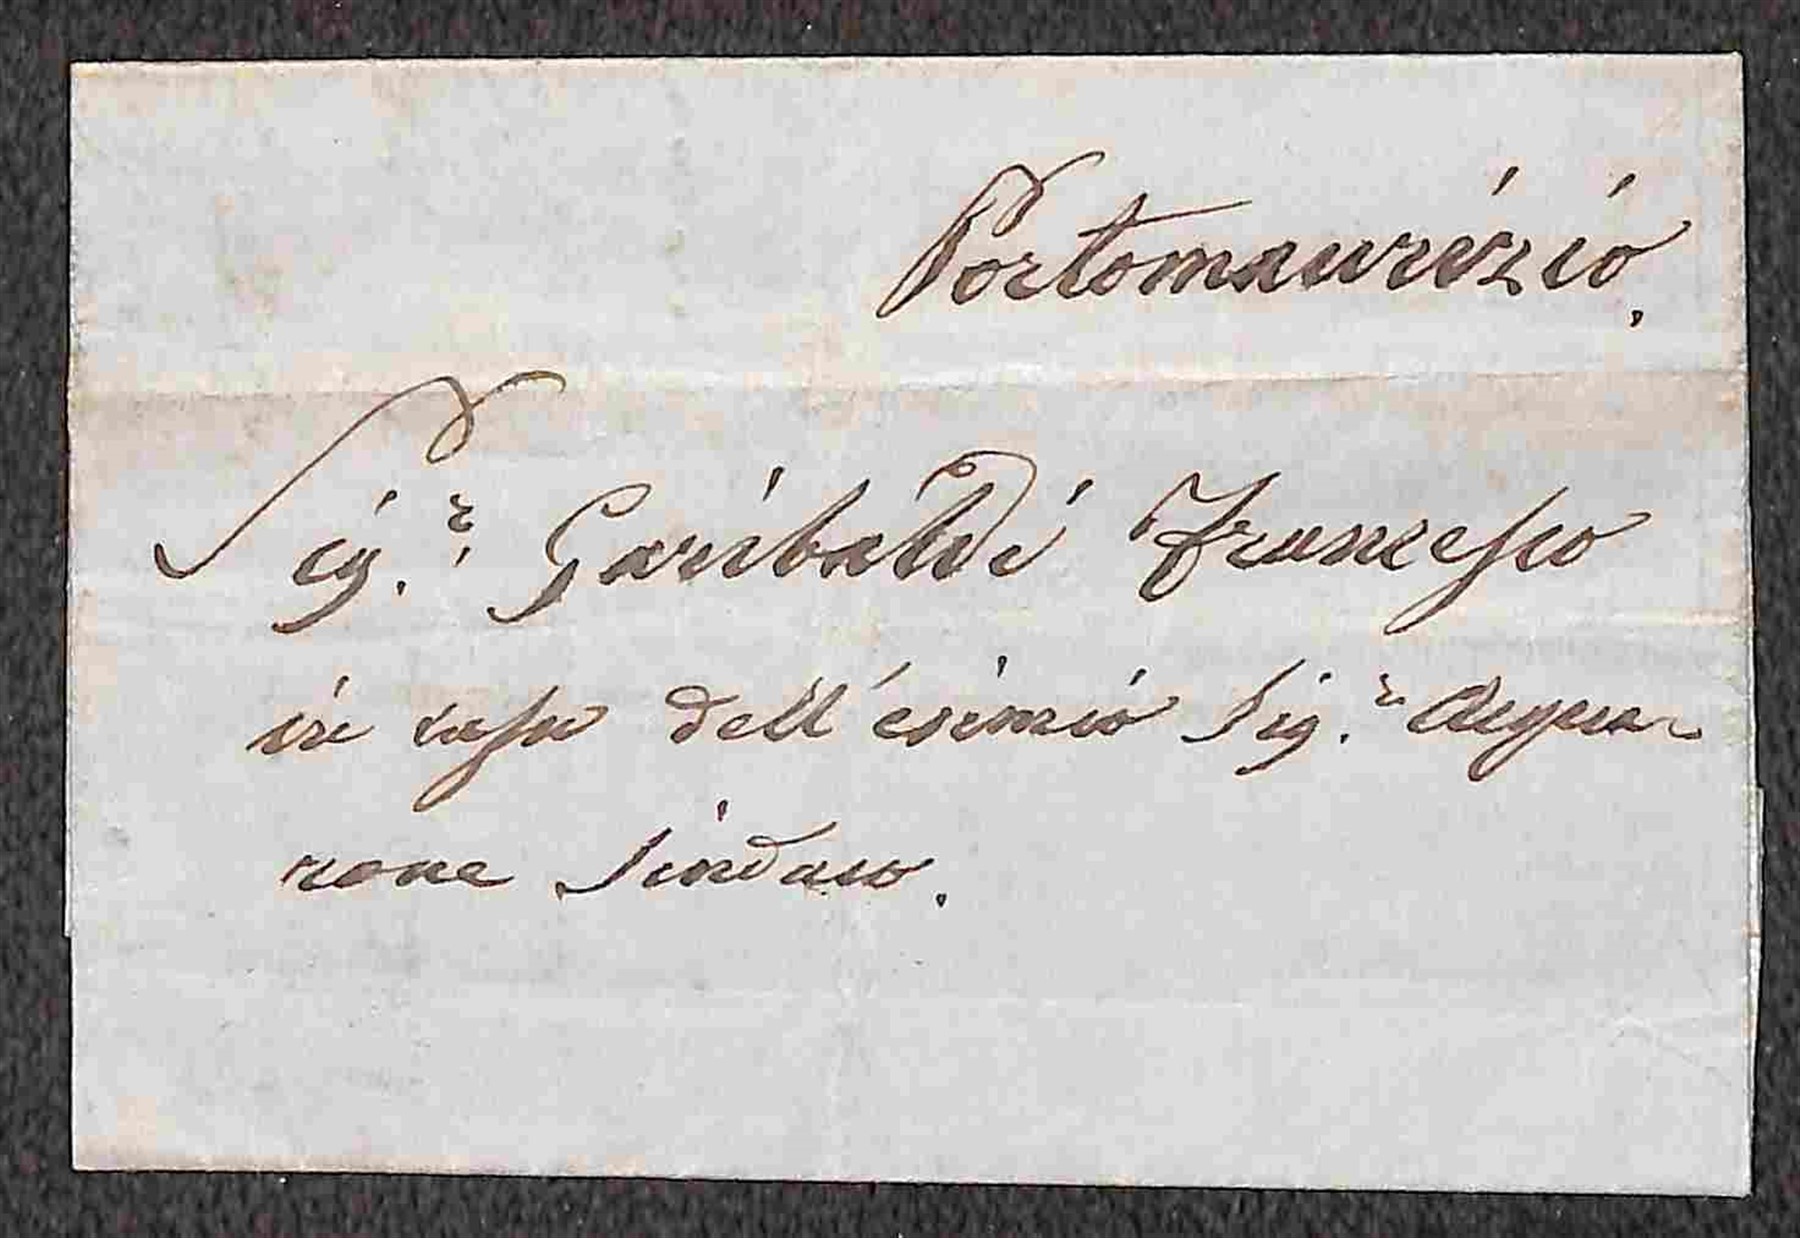 Portomaurizio.
Sig.r Garibaldi Francesco
in casa dell'esimio Sig.r Acqua-
rone Sindaco.